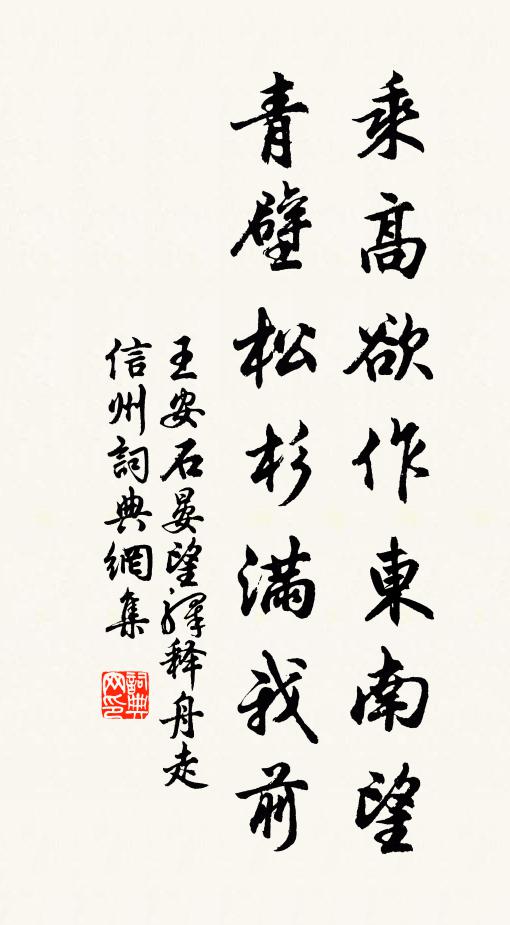 乘高欲作東南望
青壁松杉滿我前
王安石晏望驛释舟走
信州詞典網集
詞典网印